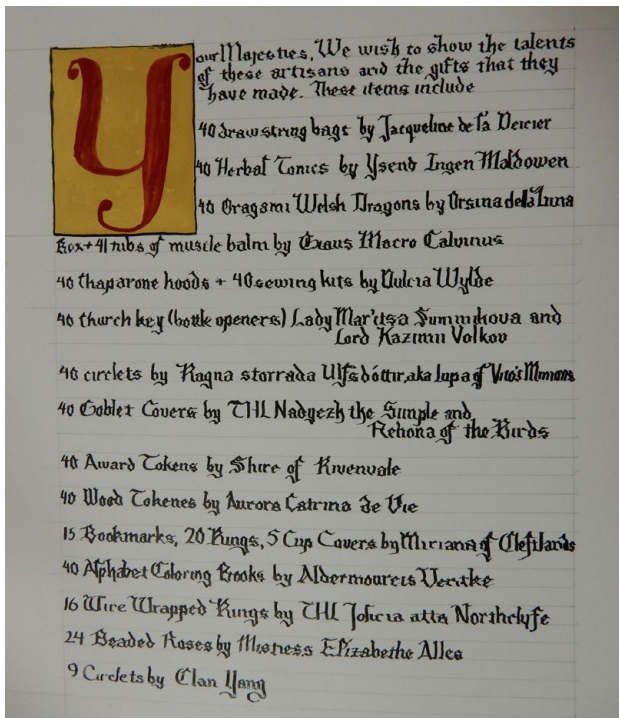 Your Majesties, We wish to show the talents
of these artisans and the gifts that they
have made. These items include
40 drawstring bags by Jacqueline de la
40 Herbal Tonics by Ysend Ingen Maldowen
40 Oragami Welsh Dragons by Orsina della Luna
Box + 41 tubs of muscle balm by Macro Calvinus
40 Chaparone hoods + 40 sewing kits by Dulcia Wylde
40 Church key (bottle openers) Lady Mar'usa and
Lord Kazimir Volkov
40 circlets by Ragna storrada Ulfsdóttir, aka Lupa of Vito's Minions
40 Goblet Covers by THL Nadyezh the Simple and
Rehona of the Birds
40 Award Tokens by Shire of Rivenvale
40 Wood Tokenes by Aurora Catrina de Vie
15 Bookmarks, 20 Rings, 5 Cup Covers by Miriana of Cleftlands
40 Alphabet Coloring Books by
16 Wire Wrapped Rings by THL atta Northclyfe
24 Beaded Roses by Mistress Elizabethe Alles
9 Circlets by Clan Yang